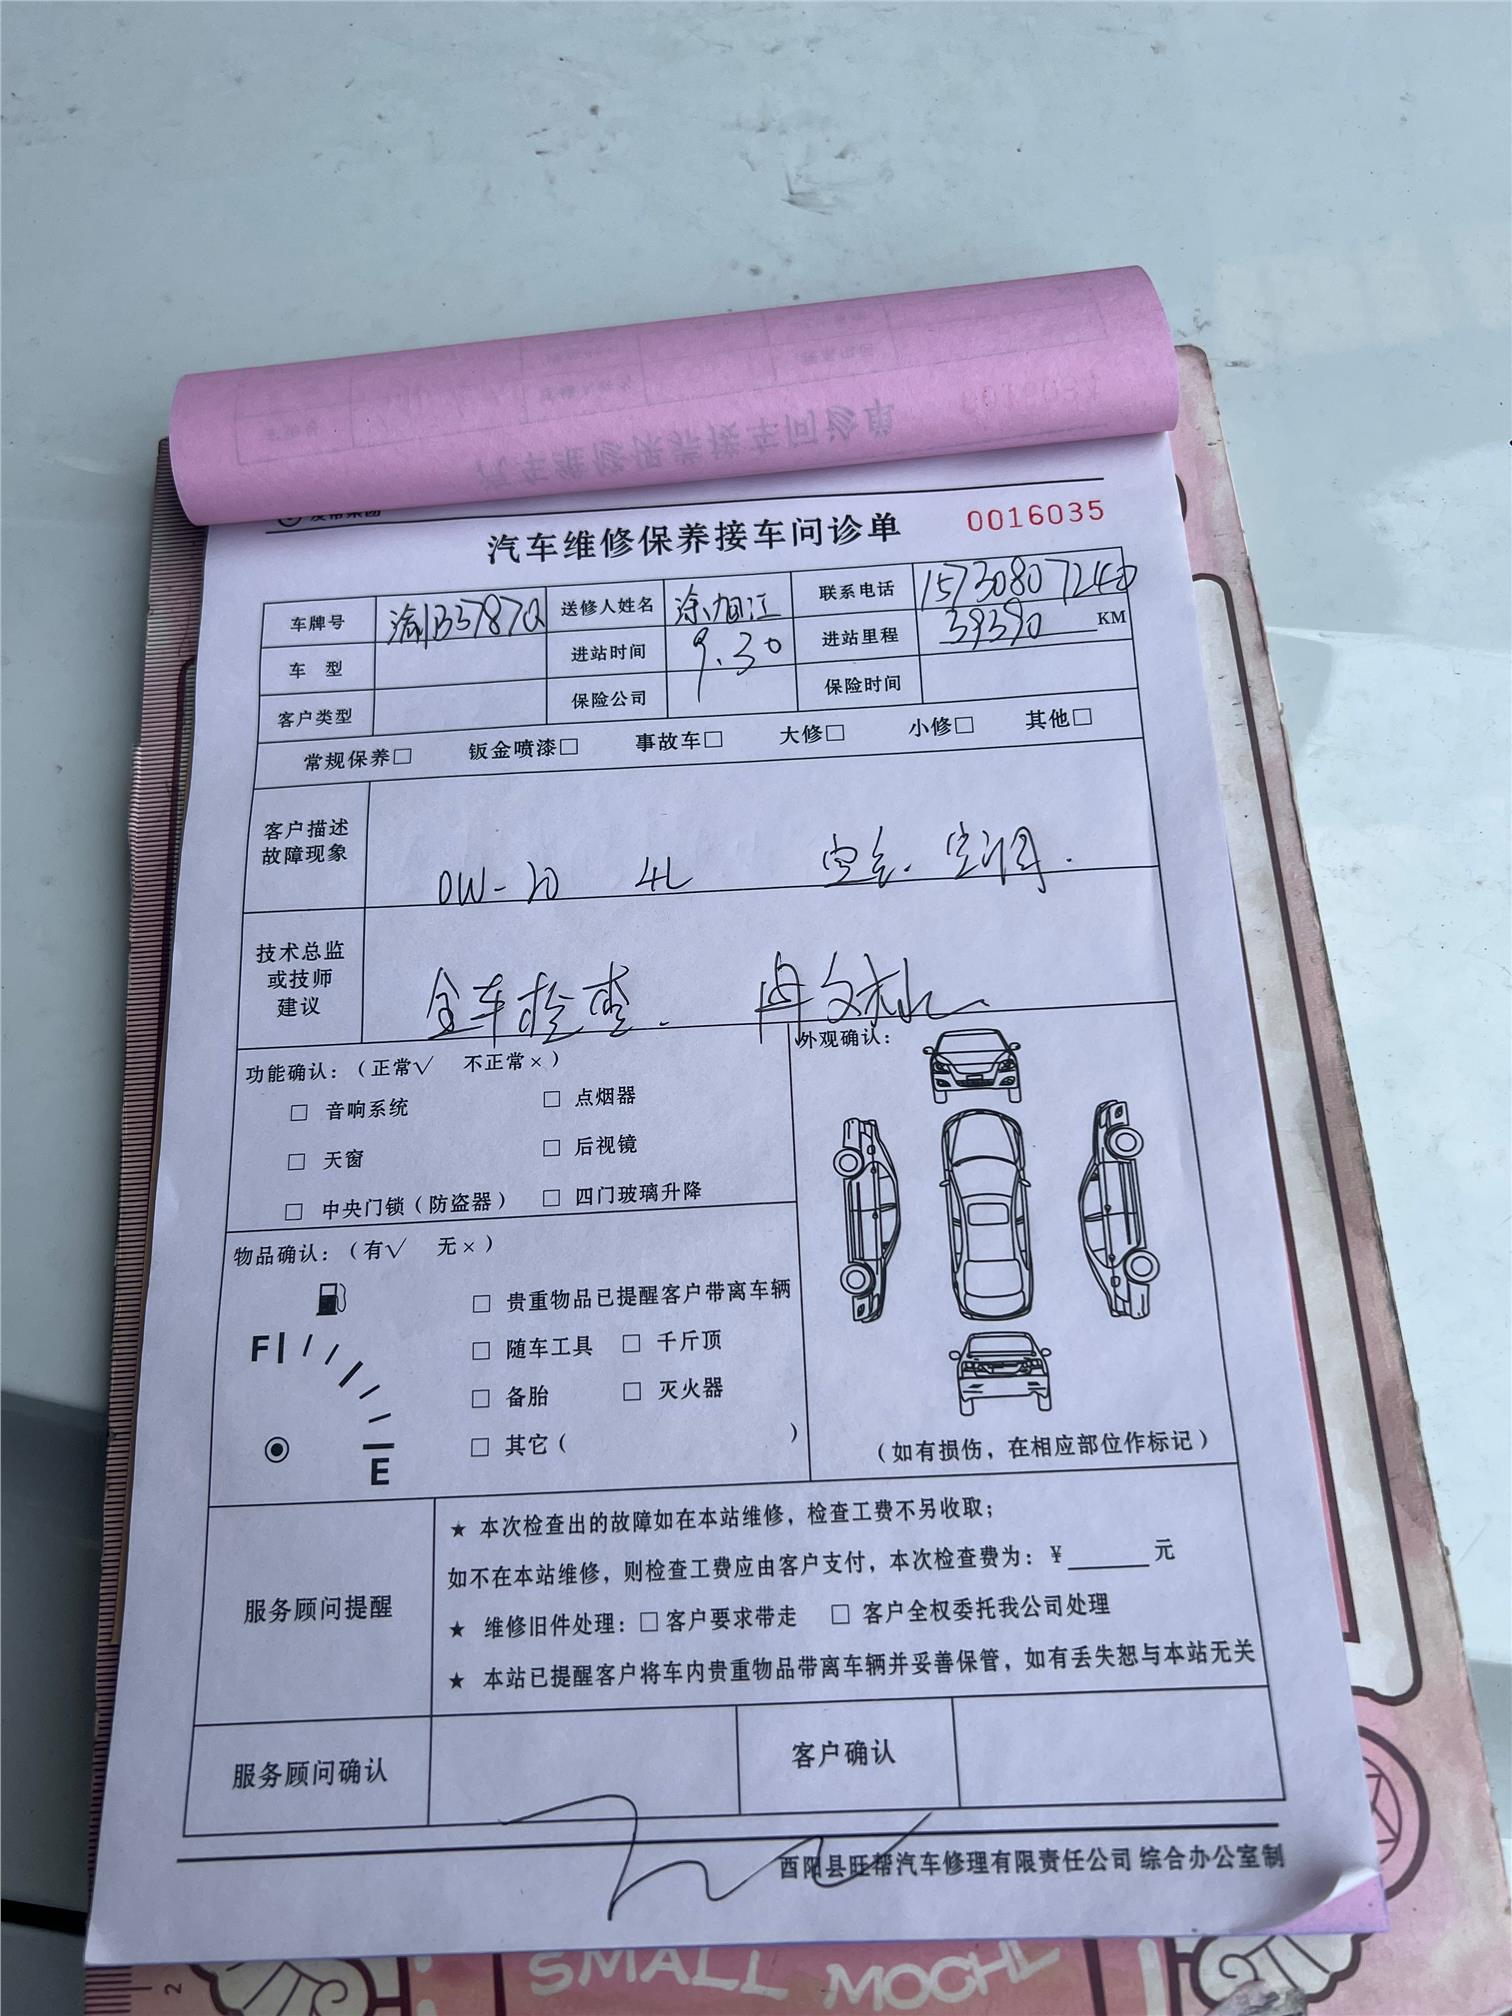 汽车维修保养接车问诊单 0016035
车牌号 渝B5787Q 送修人姓名 涂旭江 联系电话 15730807240
车 型 进站时间 9.30 进站里程 39390 KM
客户类型 保险公司 保险时间
常规保养□ 钣金喷漆□ 事故车□ 大修□ 小修□ 其他□
客户描述
故障现象
0W-20 4L 空气. 空调.
技术总监
或技师
建议
全车检查.
功能确认:(正常√ 不正常×) 外观确认:
□ 音响系统 □ 点烟器
□ 天窗 □ 后视镜
□ 中央门锁(防盗器) □ 四门玻璃升降
物品确认:(有√ 无×)
□ 贵重物品已提醒客户带离车辆
F
□ 随车工具 □ 千斤顶
□ 备胎 □ 灭火器
□ 其它( )
E
(如有损伤,在相应部位作标记)
服务顾问提醒
★ 本次检查出的故障如在本站维修,检查工费不另收取;
如不在本站维修,则检查工费应由客户支付,本次检查费为:¥______元
★ 维修旧件处理:□客户要求带走 □ 客户全权委托我公司处理
★ 本站已提醒客户将车内贵重物品带离车辆并妥善保管,如有丢失恕与本站无关
服务顾问确认 客户确认
酉阳县旺帮汽车修理有限责任公司 综合办公室制
SMALL MOCHI
2